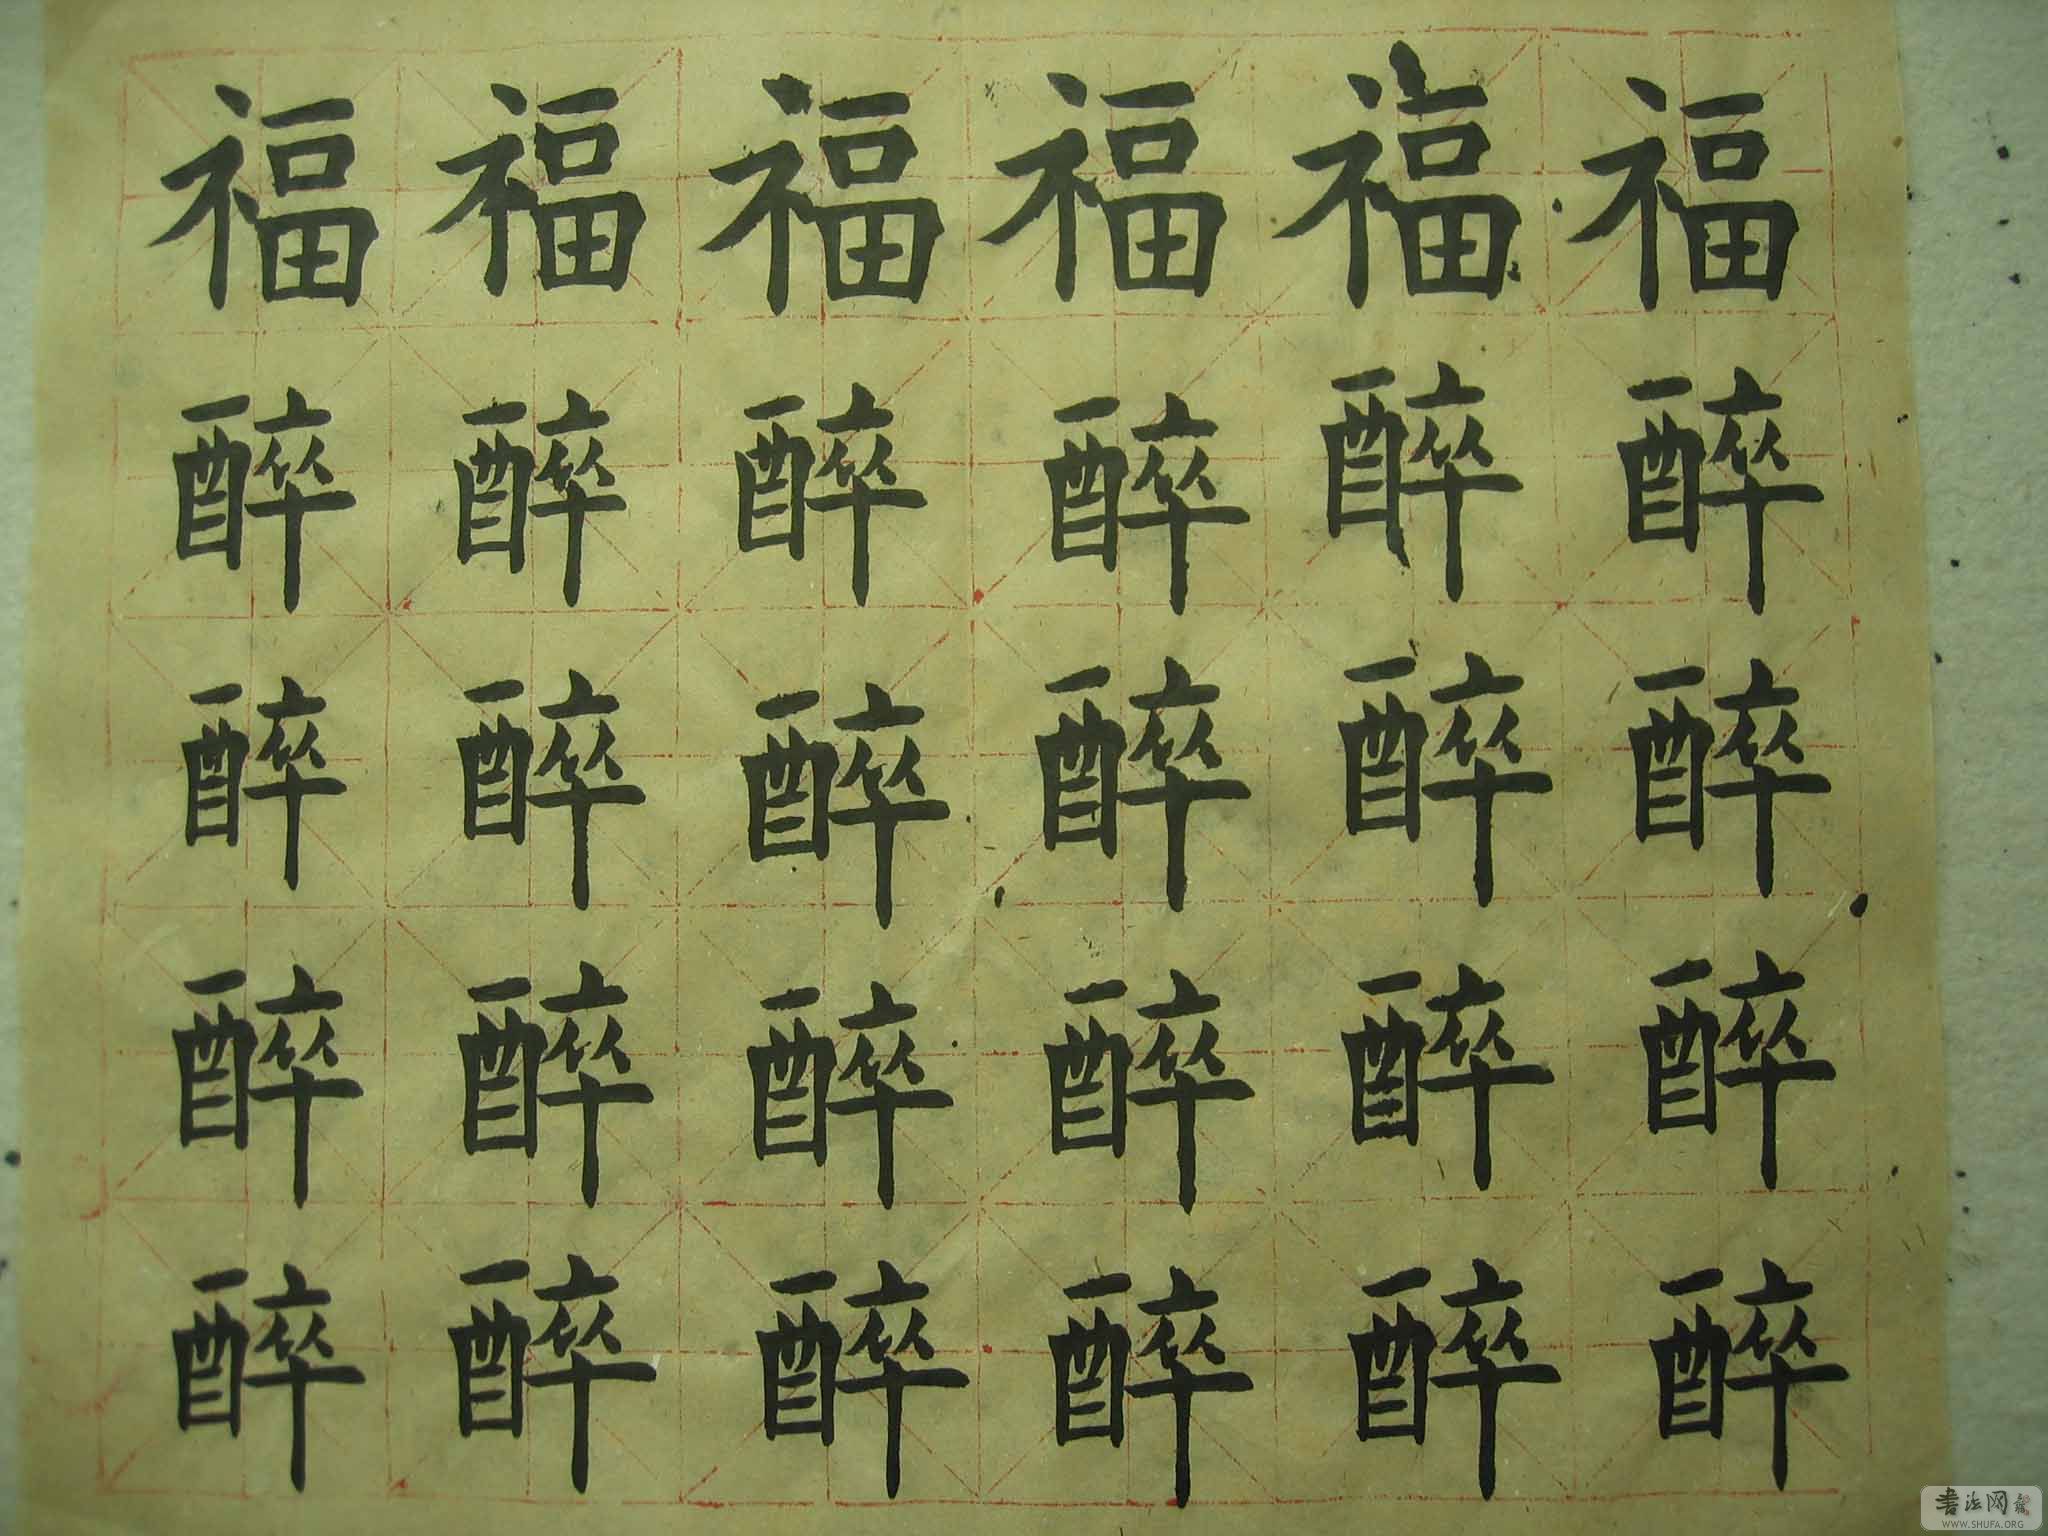 福福福福福福
醉醉醉醉醉醉
醉醉醉醉醉醉
醉醉醉醉醉醉
醉醉醉醉醉醉
书法网
WWW.SHUFA.ORG